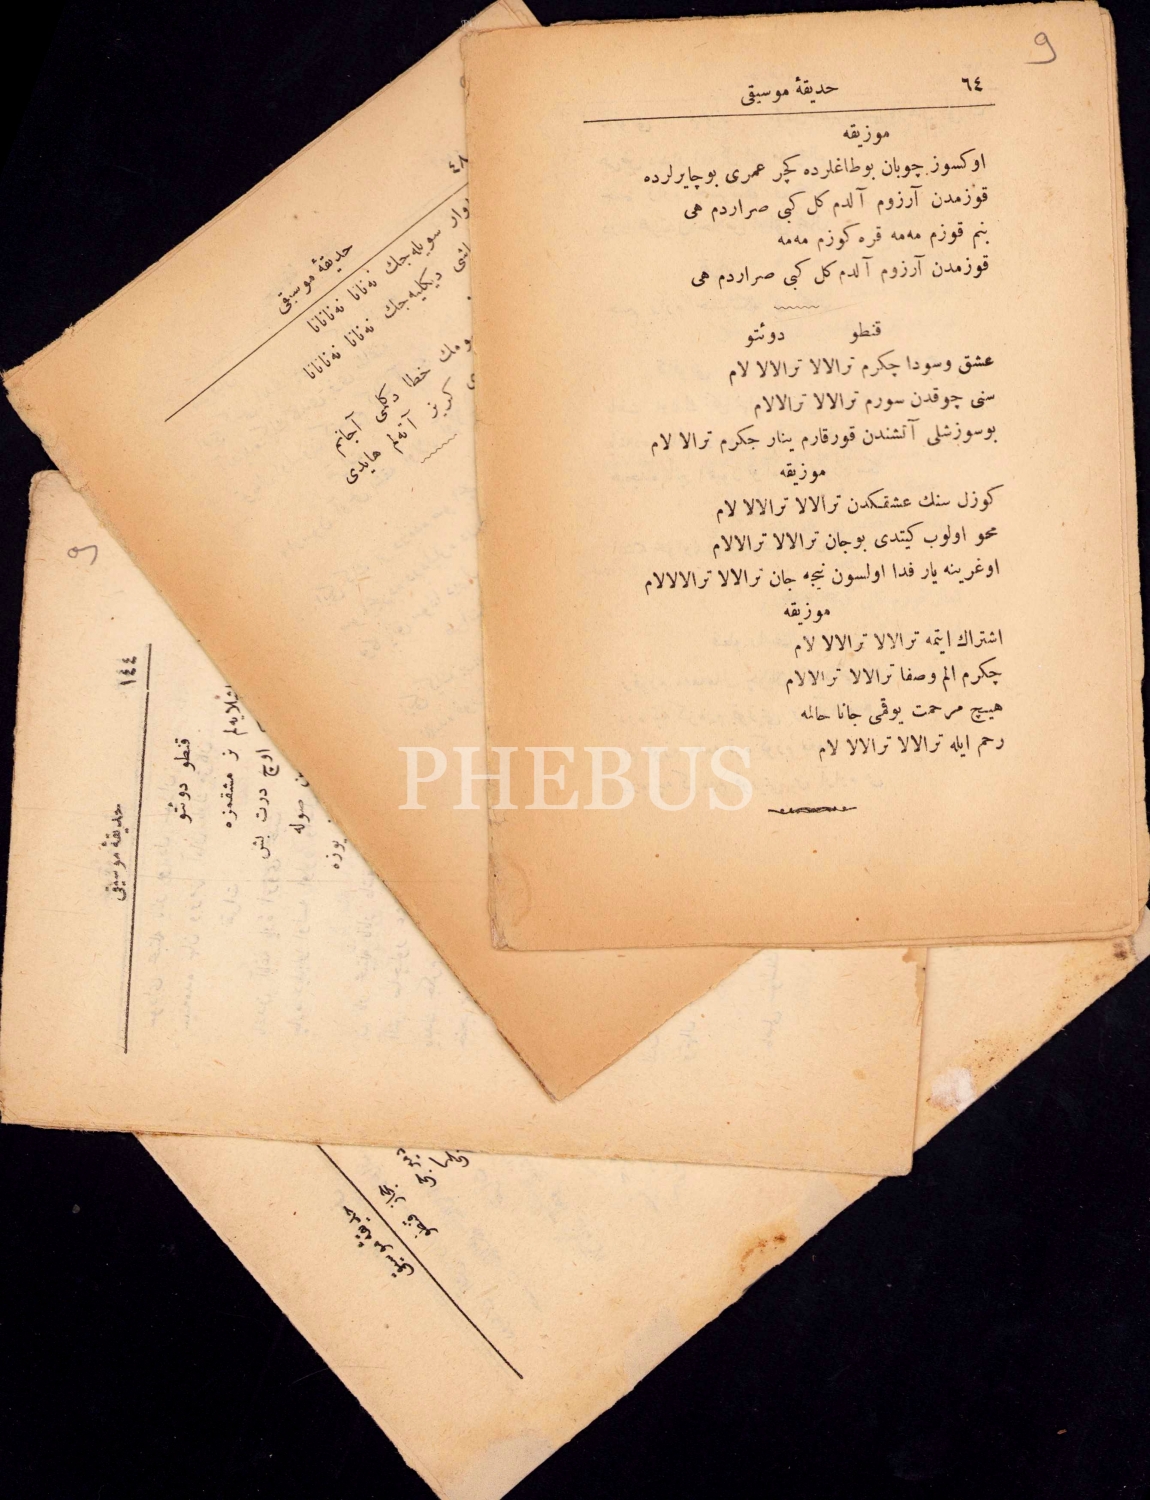 9
حديقهٔ موسيقى ٦٤
موزيقه
اوكسوز چوبان بوطاغلرده كچر عمرى بوچايرلرده
قوزمدن آرزوم آلدم كل كبى صراردم هى
بنم قوزم مه‌مه قره كوزم مه‌مه
قوزمدن آرزوم آلدم كل كبى صراردم هى
قنطو دوئتو
عشق وسودا چكرم ترالالا ترالالا لام
سنى چوقدن سورم ترالالا ترالالام
بوسوزشلى آتشندن قورقارم ينار جكرم ترالا لام
موزيقه
كوزل سنك عشقكدن ترالالا ترالالا لام
محو اولوب كيتدى بوجان ترالالا ترالالام
اوغرينه يار فدا اولسون نيجه جان ترالالا ترالالالام
موزيقه
اشتراك ايتمه ترالالا ترالالا لام
چكرم الم وصفا ترالالا ترالالام
هيچ مرحمت يوقمى جانا حالمه
رحم ايله ترالالا ترالالا لام
٤٨
حديقهٔ موسيقى
سويله‌جك نه‌نانا نه‌نانانانا
ديكليه‌جك نه‌نانا نه‌نانانانا
خطا دكلمى آجانم
هايدى
9
١٤٤
حديقهٔ موسيقى
قنطو دوئتو
ز مشقمزه
اوچ درت بش
صوله
يوزه
حديقهٔ موسيقى
PHEBUS